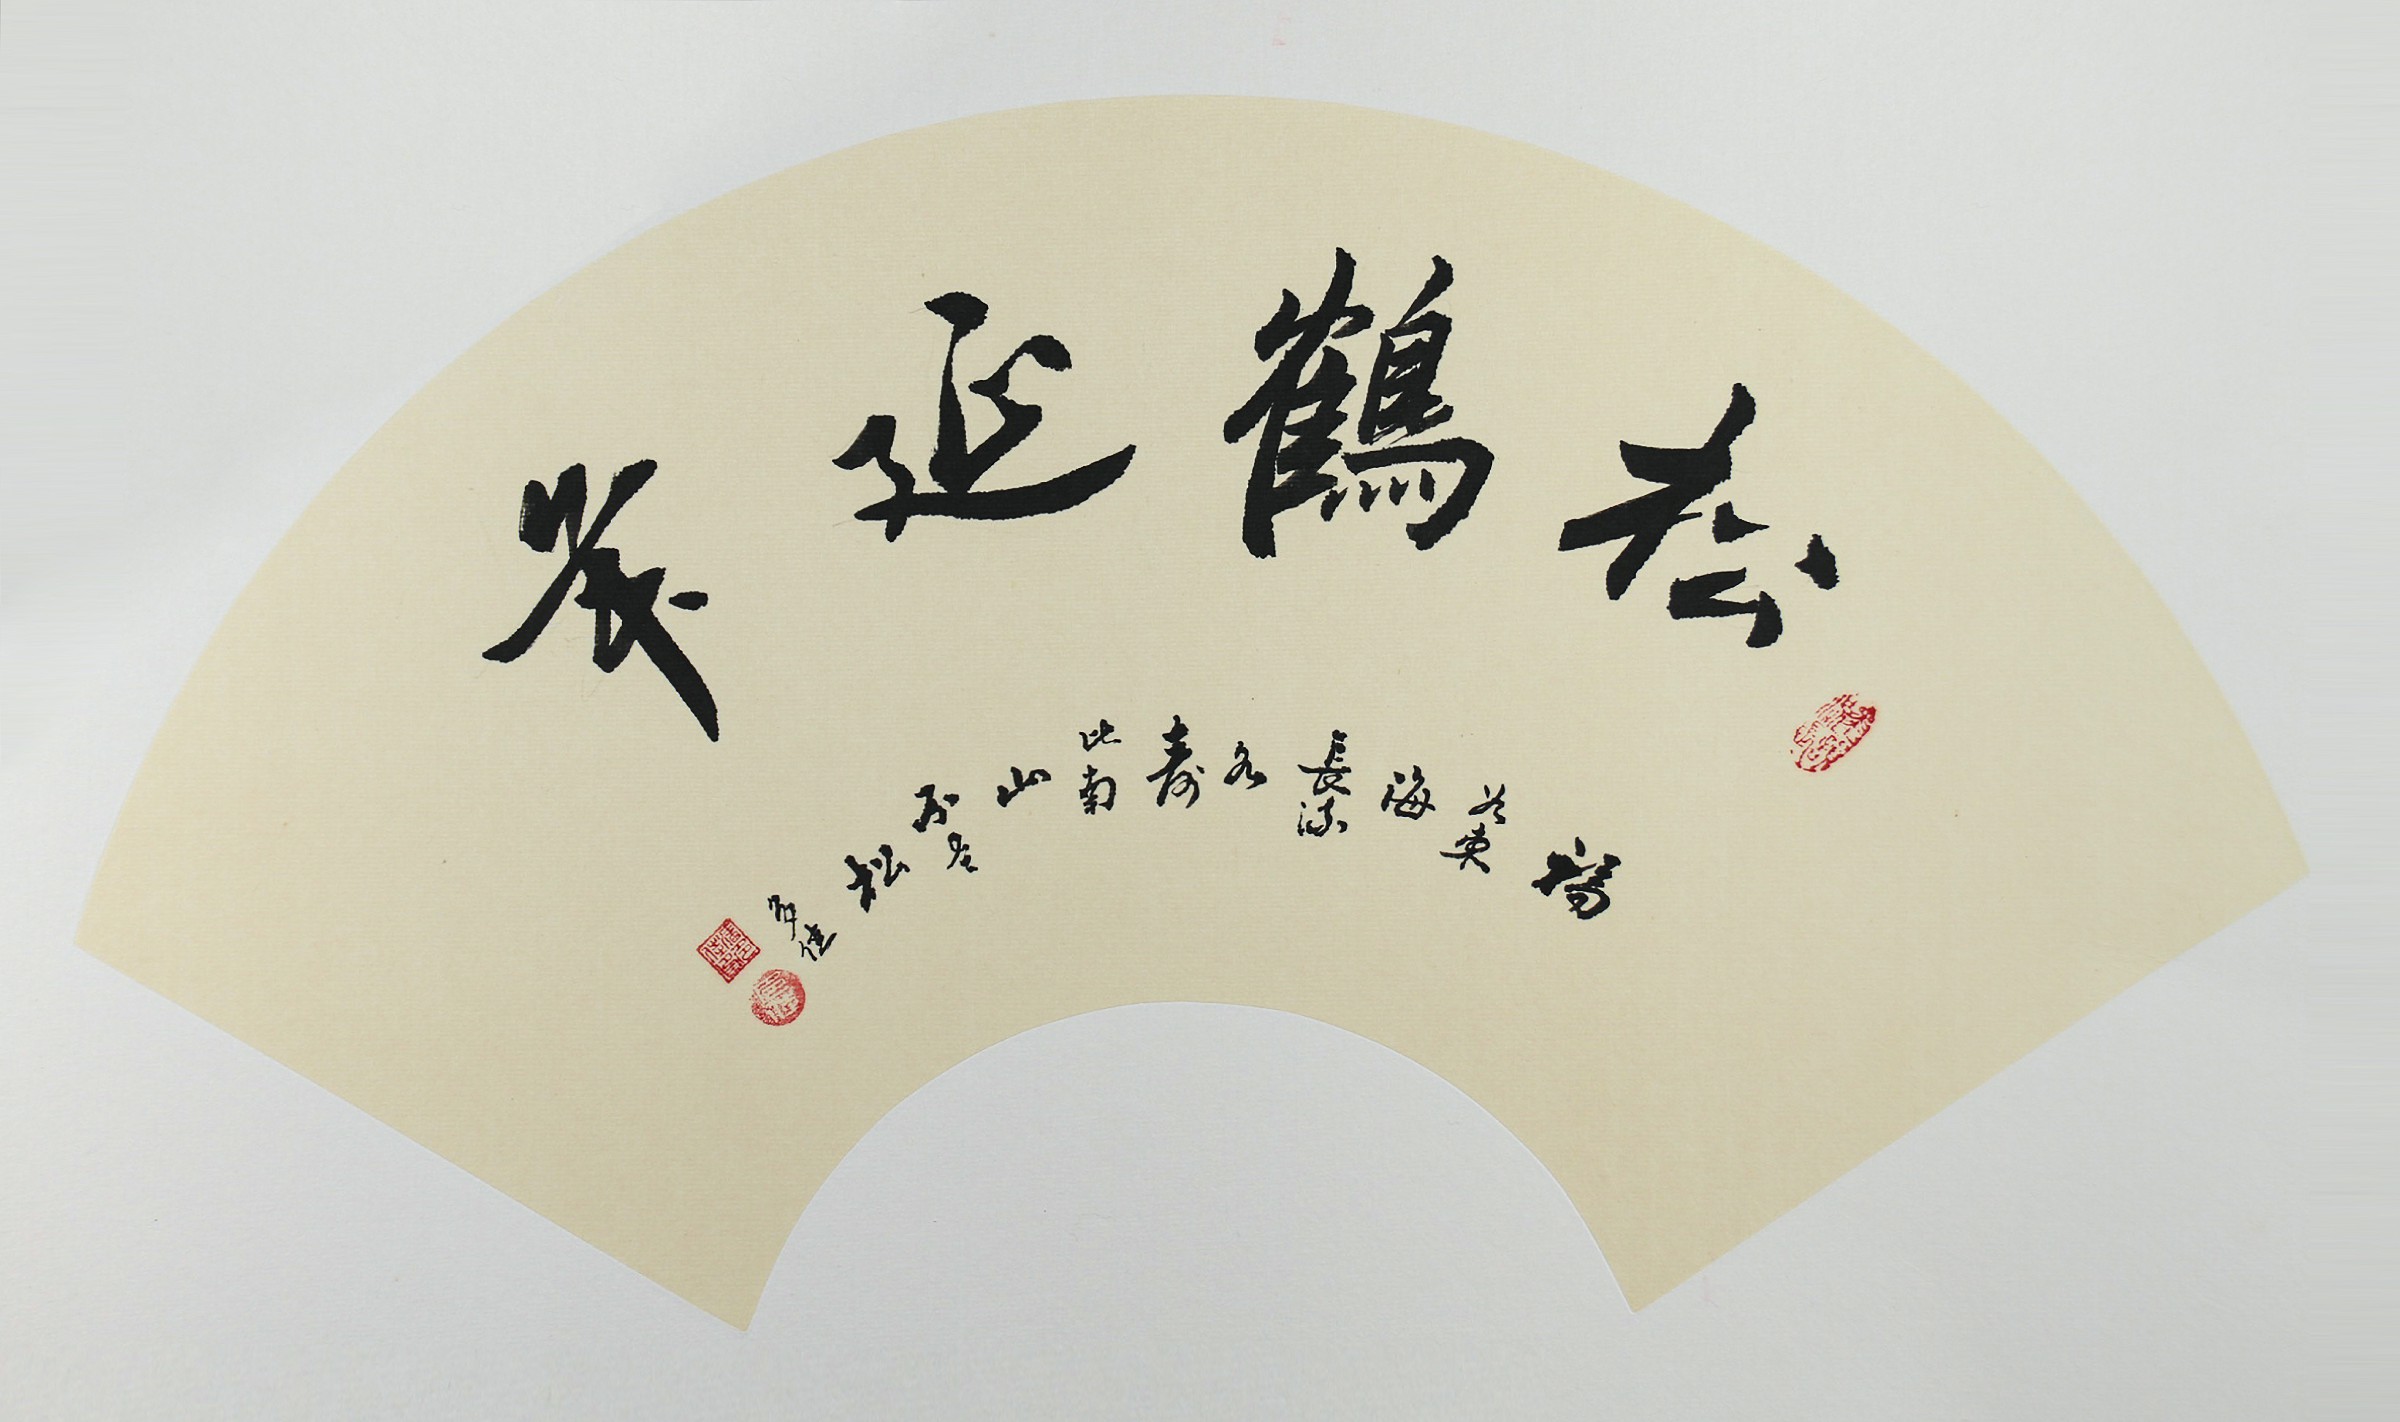 松鹤延年
福如東海長流水
壽比南山不老松